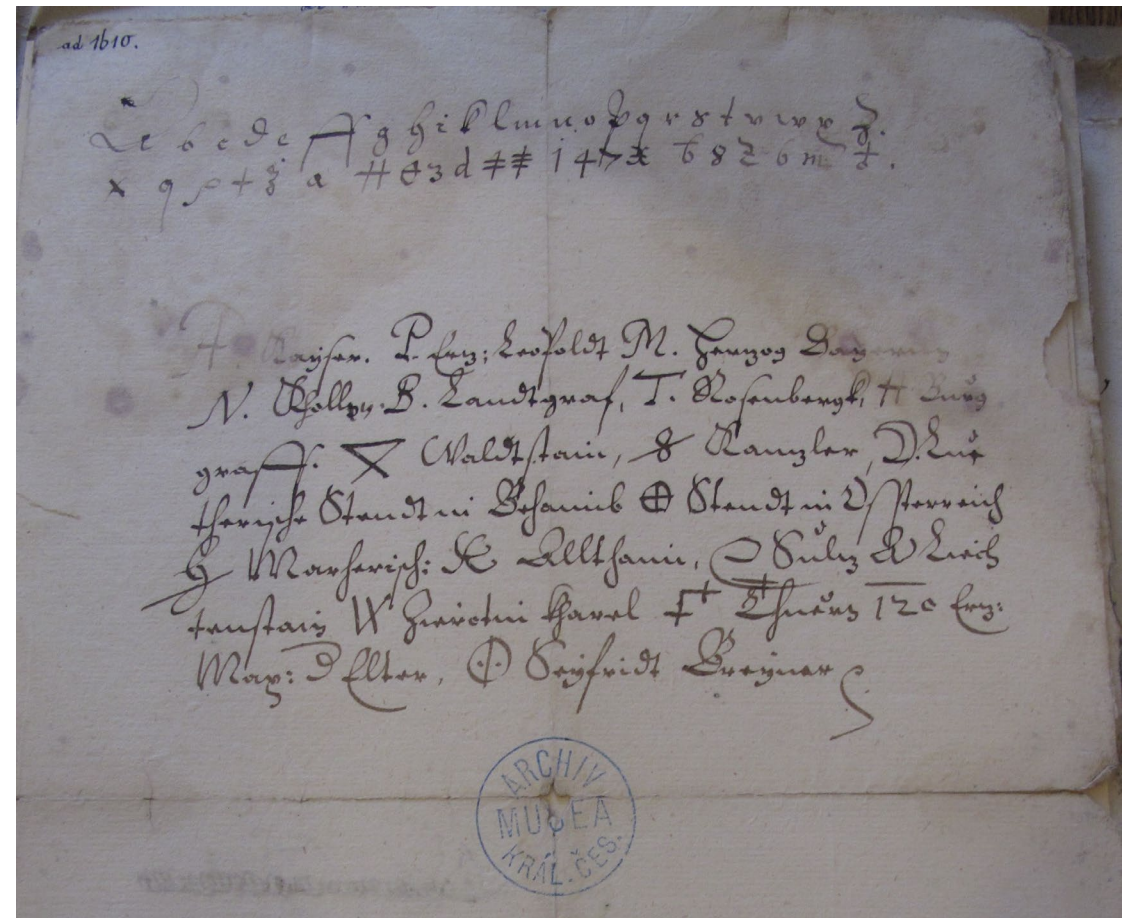 ad 1610.
a b c d e ff g h i k l m n o p q r s t v w x z.
x 9 + a # 3 d ǂ 1 4 8 6 m
Kayser. P. Erz: Leopoldt M. Herzog Bayern
N. B. Landtgraf, T. Rosenbergk, # Burg
graff. Waldtstain, 8 Kanzler, D. Lut
therische Stendt in Behamib ⊕ Stendt in Össterreich
Marherisch: Allthann, Sulz Liech
tenstain W Zierotin Kharel Thurn 120 Erz:
Max: D Elter, Seyfridt Breyner
ARCHIV
MUSEA
KRÁL. ČES.